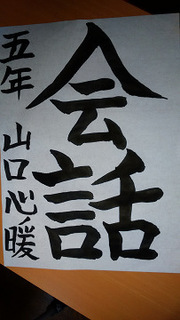 会話
五年 山口心暖